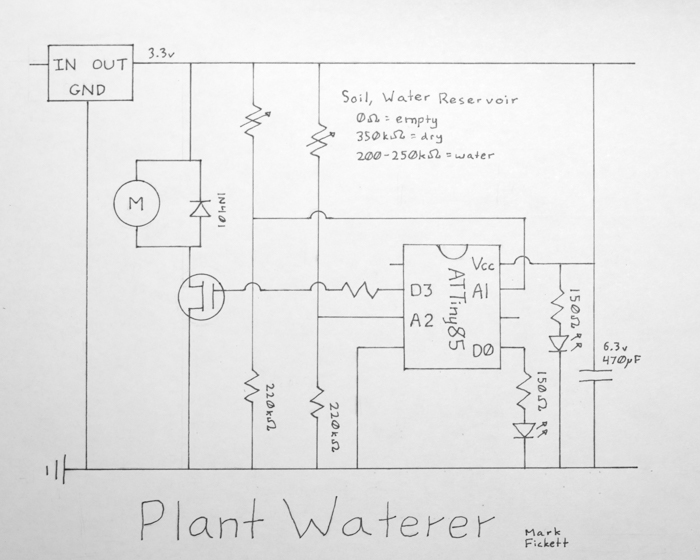 3.3v
IN OUT
GND
Soil, Water Reservoir
0Ω = empty
350kΩ = dry
200-250kΩ = water
M
1N401
Vcc
D3
A1
A2
D0
ATTiny85
150Ω
6.3v
470µF
150Ω
220kΩ
220kΩ
Plant Waterer
Mark
Fickett